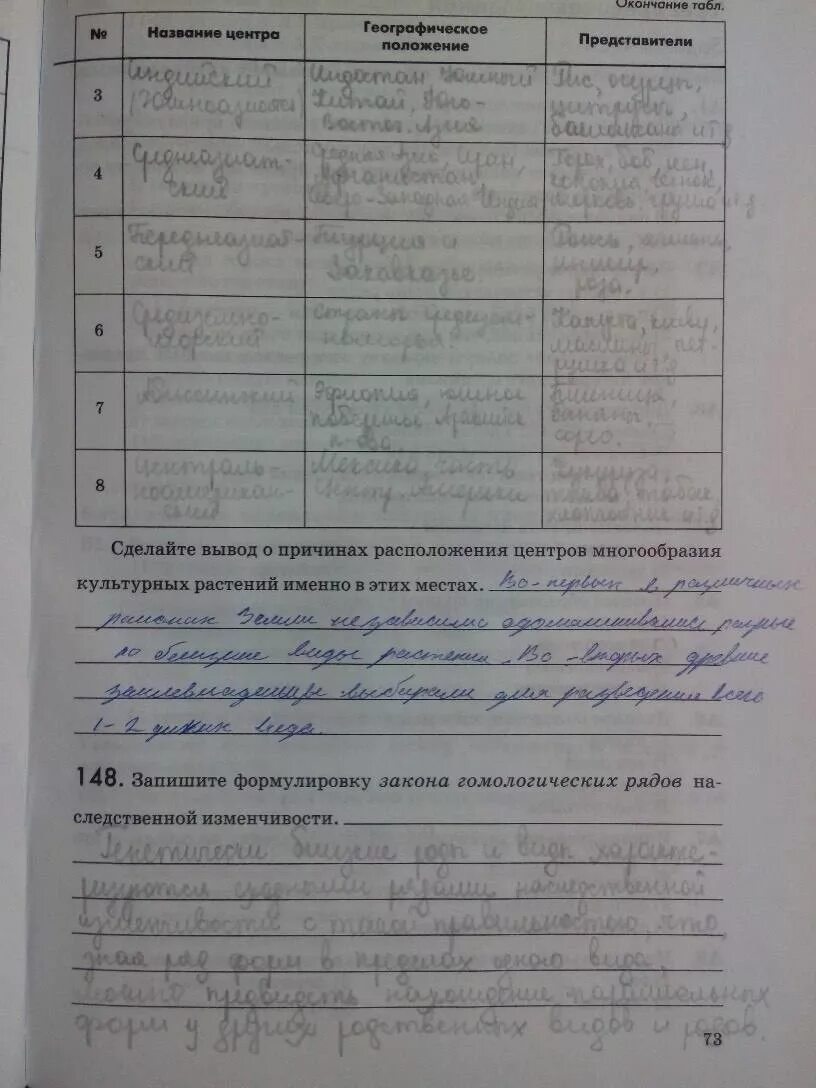 Окончание табл.
№ Название центра Географическое положение Представители
3 Индийский Индостан Южный Рис, огурец,
(Южноазиатск) Китай, Юго- цитрусы,
Восточ. Азия баклажаны и т д
4 Среднеазиат- Средняя Азия, Иран, Горох, боб, лен,
ский Афганистан
Северо-Западная Индия морковь, груша и т д
5 Переднеазиат- Турция и Рожь,
ский Закавказье. инжир,
роза.
6 Средиземно- Страны средизем- Капуста,
морский номорья
7 Абиссинский Эфиопия, южное пшеница,
побережье Аравийск бананы,
п-ова. сорго.
8 Централь- Мексика, часть Кукуруза,
ноамерикан- Центр. Америки табак,
ский и т д
Сделайте вывод о причинах расположения центров многообразия
культурных растений именно в этих местах. Во-первых в различных
районах Земли независимо одомашнивались разные
по виды растений. Во-вторых древние
земледельцы выбирали для разведения всего
1-2 диких вида.
148. Запишите формулировку закона гомологических рядов на-
следственной изменчивости.
Генетически близкие роды и виды характе-
ризуются сходными рядами наследственной
изменчивости с такой правильностью, что,
зная ряд форм в пределах одного вида,
можно предвидеть нахождение параллельных
форм у других родственных видов и родов.
73